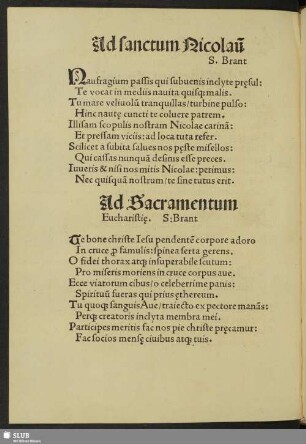 Ad sanctum Nicolaū
S. Brant
Naufragium passis qui subuenis inclyte pręsul:
Te vocat in mediis nauita quisq; malis.
Tu mare veliuolū tranquillas/turbine pulso:
Hinc nautę cuncti te coluere patrem.
Illisam scopulis nostram Nicolae carinā:
Et pressam viciis: ad loca tuta refer.
Scilicet a subita salues nos pęste misellos:
Qui cassas nunquā desinis esse preces.
Iuueris & nisi nos mitis Nicolae: perimus:
Nec quisquā nostrum/te sine tutus erit.
Ad Sacramentum
Eucharistię. S: Brant
Te bone christe Iesu pendentē corpore adoro
In cruce ꝓ famulis: spinea serta gerens.
O fidei thorax atq; insuperabile scutum:
Pro miseris moriens in cruce corpus aue.
Ecce viatorum cibus/o celeberrime panis:
Spirituū fueras qui prius ętherеum.
Tu quoq; sanguis Aue/traiecto ex pectore manās:
Perq; creatoris inclyta membra mei.
Participes meritis fac nos pie christe pręcamur:
Fac socios mensę ciuibus atq; tuis.
SLUB